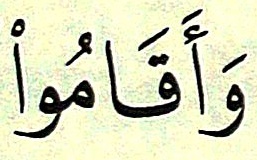 وَأَقَامُوا۟